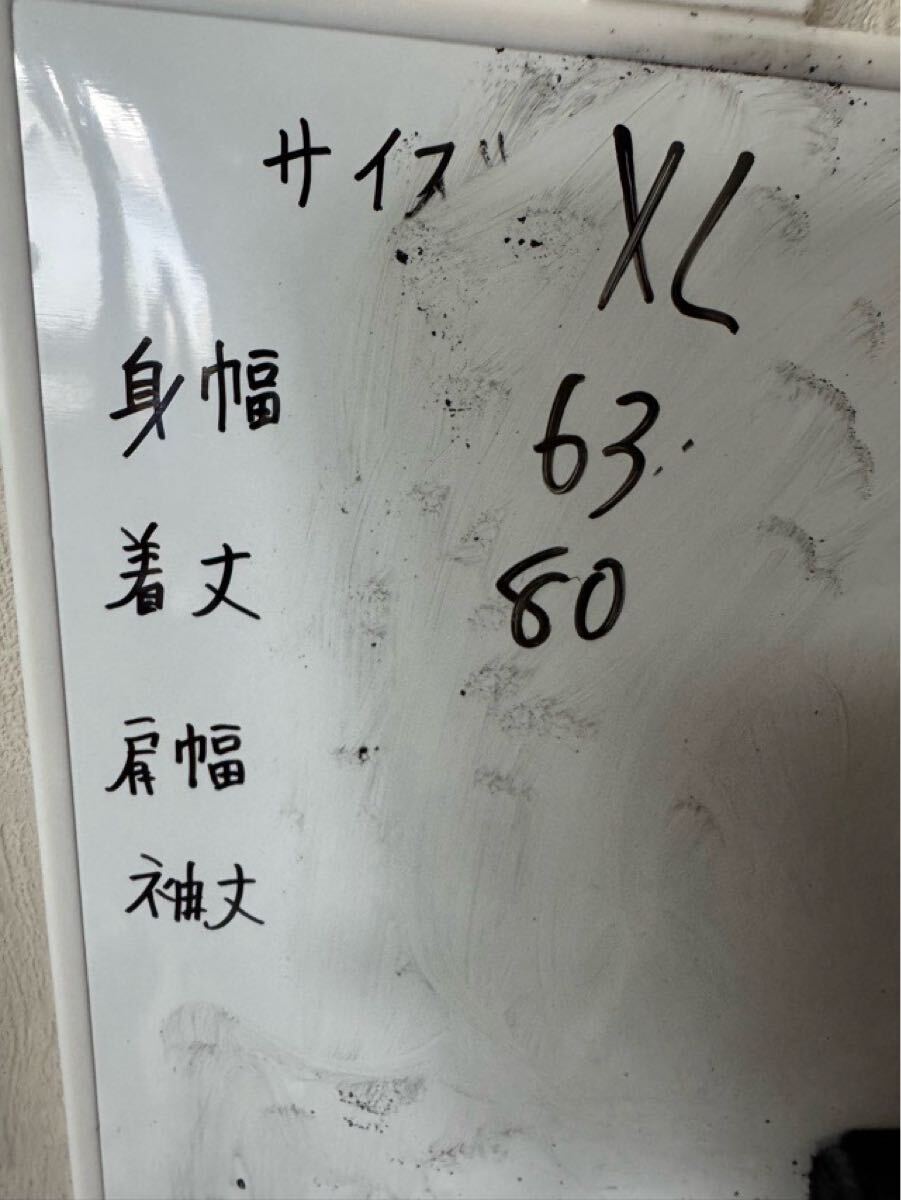 サイズ XL
身幅 63
着丈 80
肩幅
袖丈